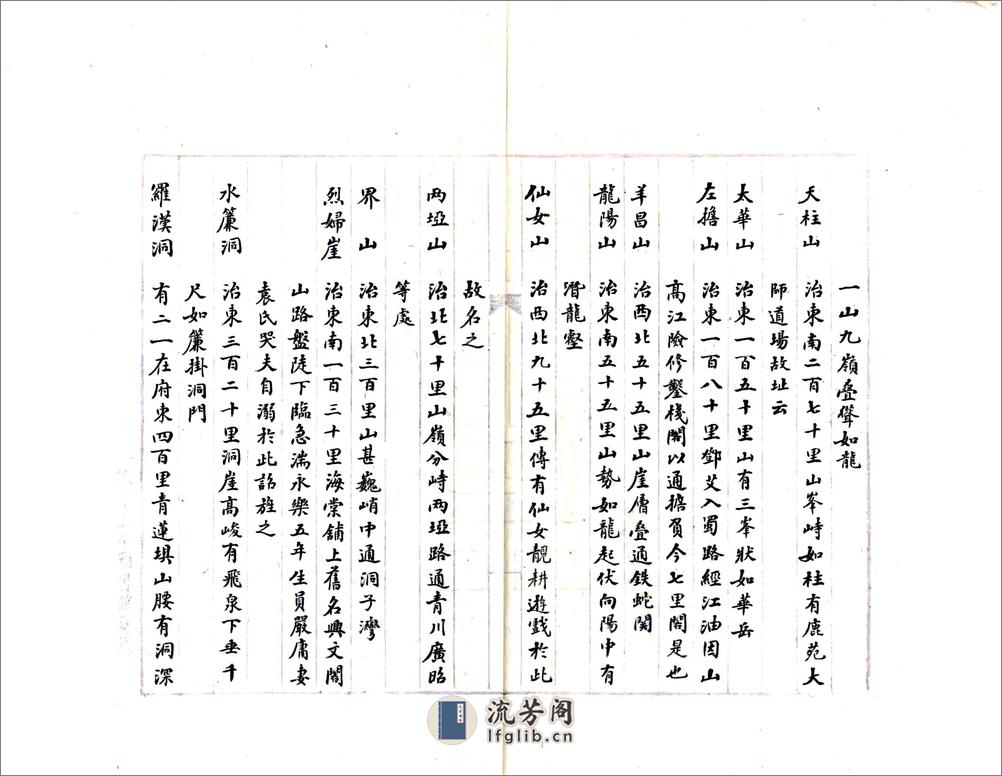 一山九嶺疊聳如龍
天柱山　治東南二百七十里山峯峙如柱有鹿苑大
師道場故址云
太華山　治東一百五十里山有三峯狀如華岳
左擔山　治東一百八十里鄧艾入蜀路經江油因山
高江險修鑿棧閣以通擔負今七里閣是也
羊昌山　治西北五十五里山崖層疊通鉄蛇関
龍陽山　治東南五十五里山勢如龍起伏向陽中有
潛龍壑
仙女山　治西北九十五里傳有仙女靚耕遊戲於此
故名之
两埡山　治北七十里山嶺分峙两埡路通青川廣昭
等處
界　山　治東北三百里山甚巍峭中通洞子灣
烈婦崖　治東南一百三十里海棠舖上舊名興文閣
山路盤陡下臨急湍永樂五年生員嚴庸妻
袁氏哭夫自溺於此詔旌之
水簾洞　治東三百二十里洞崖高峻有飛泉下垂千
尺如簾掛洞門
羅漢洞　有二一在府東四百里青蓮埧山腰有洞深
流芳阁
lfglib.cn